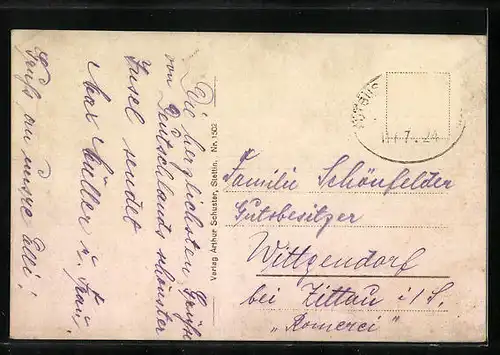 Die herzlichsten Grüße
von Deutschlands schönster
Insel sendet
Max Müller u. Frau.
Gruß an unsre Elli!
Verlag Arthur Schuster, Stettin. Nr. 1502
7. 24
Familie Schönfelder
Gutsbesitzer
Wittgendorf
bei Zittau i/S.
„Romerei"